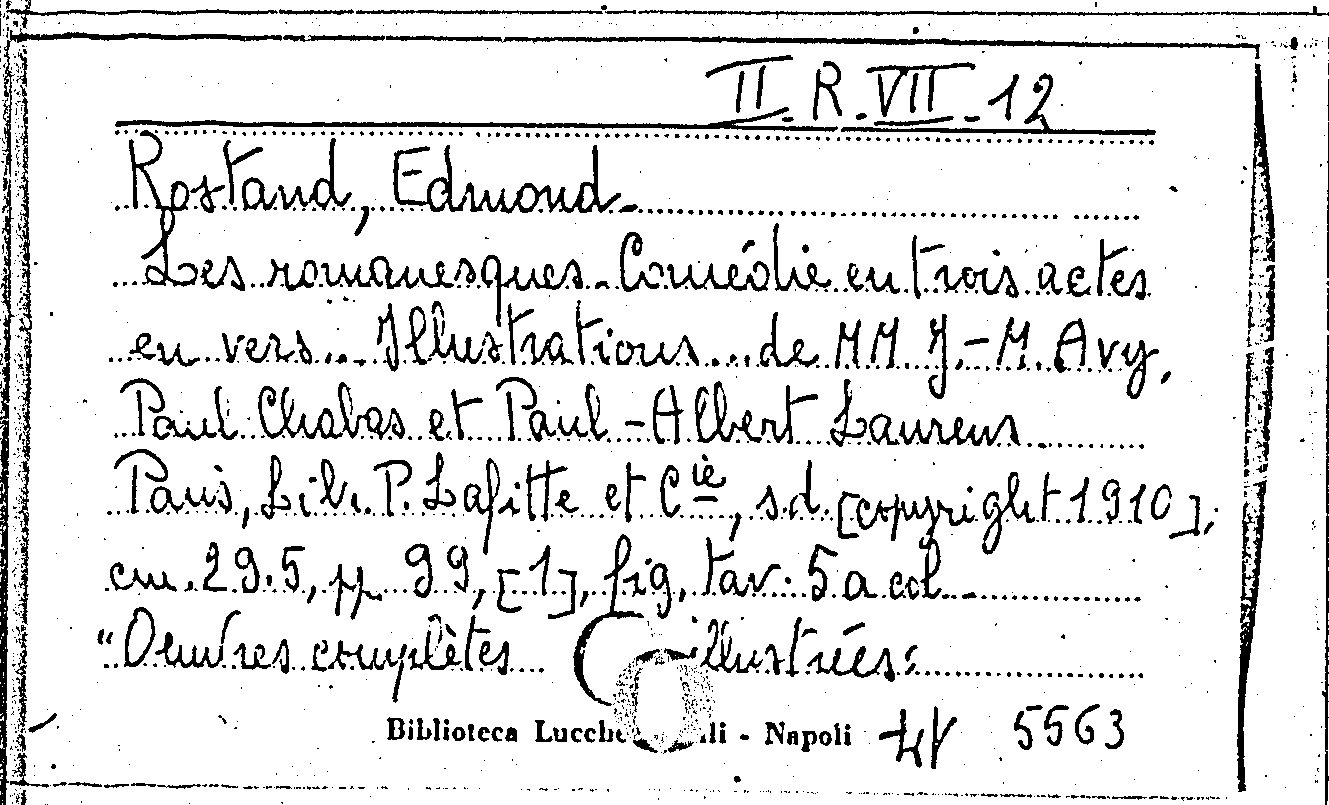 II.R.VII.12
Rostand, Edmond.
Les romanesques. Comédie en trois actes
en vers... Illustrations... de MM. J.-M. Avy,
Paul Chabas et Paul-Albert Laurens.
Paris, Lib. P. Lafitte et Cie, s.d. [copyright 1910],
cm. 29.5, pp. 99, [1], fig, tav. 5 a col.
"Oeuvres complètes... illustrées"
Biblioteca - Napoli 5563